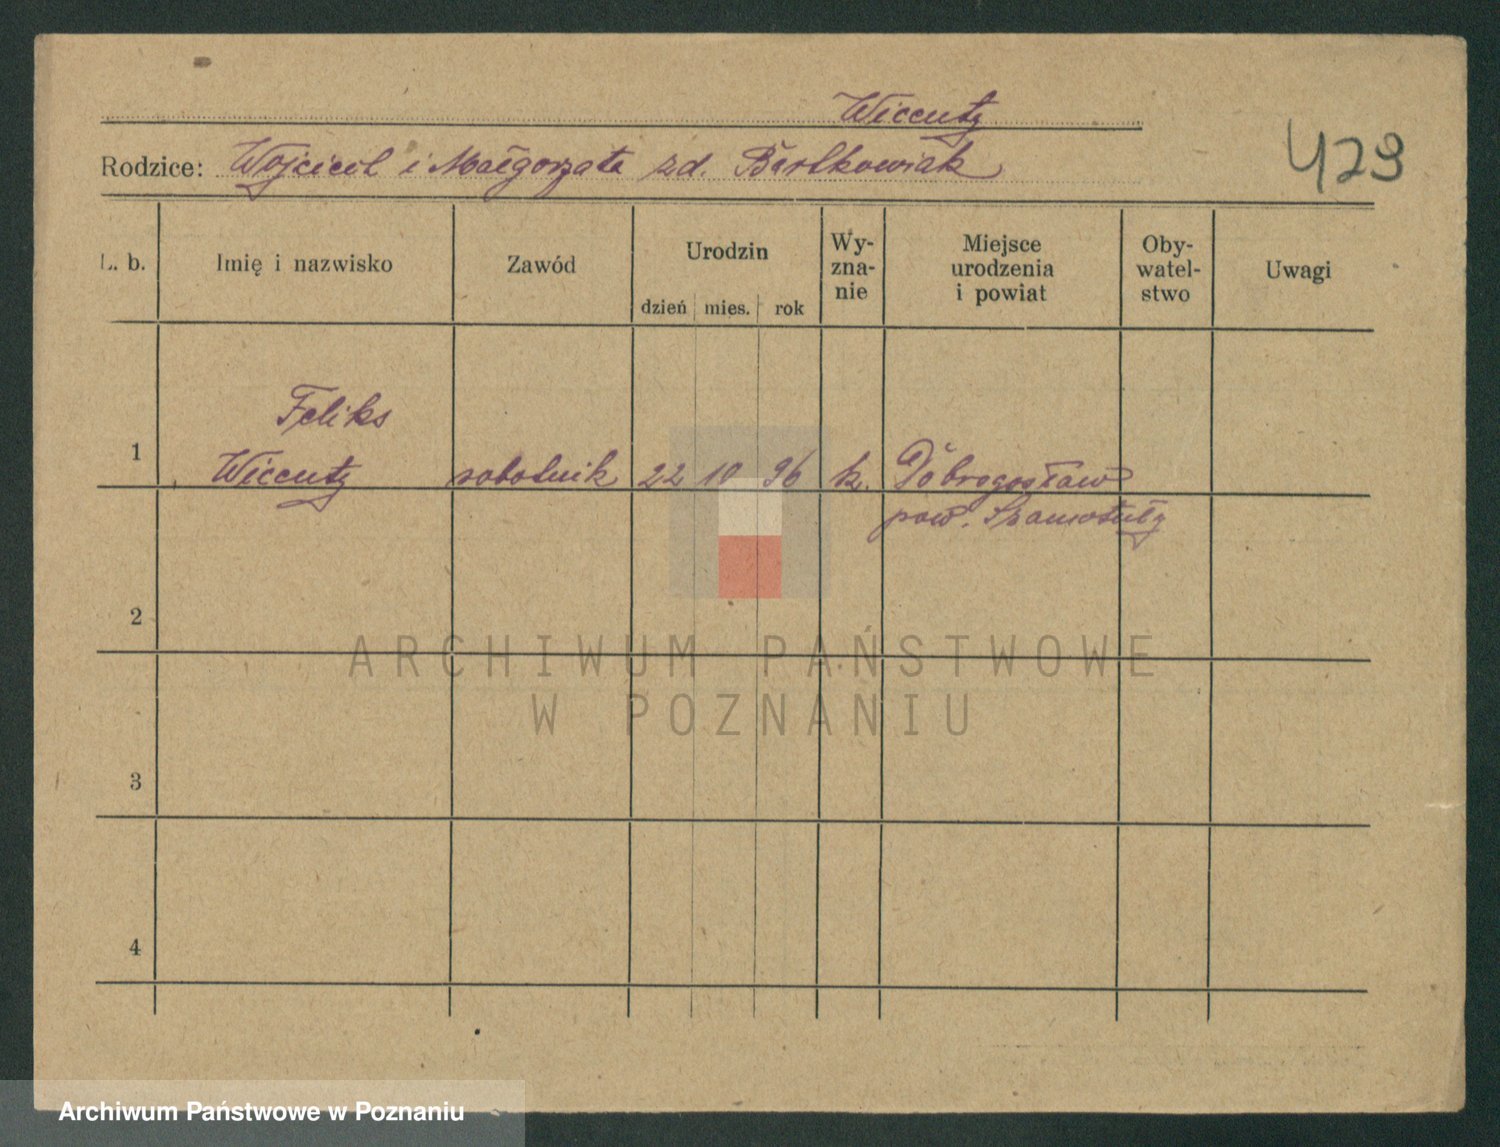 Wiccenty
Rodzice: Wojciech i Małgorzata zd. Bartkowiak
429
L. b.
Imię i nazwisko
Zawód
Urodzin
dzień mies. rok
Wy-
zna-
nie
Miejsce
urodzenia
i powiat
Oby-
watel-
stwo
Uwagi
1
Feliks
Wiccenty
robotnik 22 10 96 k. Dobrogostowo
pow. Szamotuły
2
3
4
ARCHIWUM PAŃSTWOWE
W POZNANIU
Archiwum Państwowe w Poznaniu